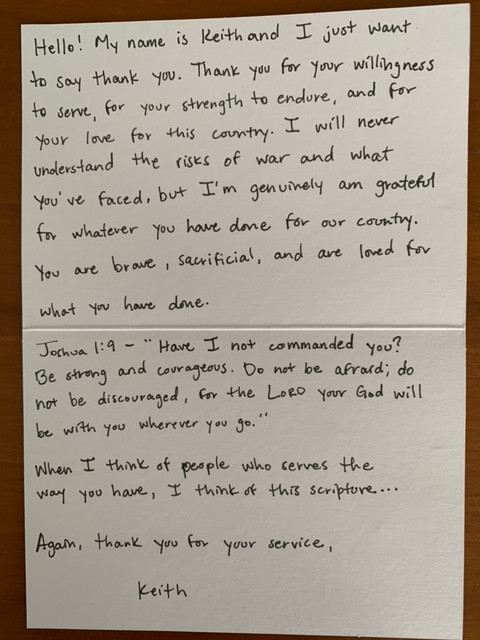 Hello! My name is Keith and I just want
to say thank you. Thank you for your willingness
to serve, for your strength to endure, and for
your love for this country. I will never
understand the risks of war and what
you've faced, but I'm genuinely am grateful
for whatever you have done for our country.
You are brave, sacrificial, and are loved for
what you have done.
Joshua 1:9 - "Have I not commanded you?
Be strong and courageous. Do not be afraid; do
not be discouraged, for the LORD your God will
be with you wherever you go."
When I think of people who serves the
way you have, I think of this scripture...
Again, thank you for your service,
Keith